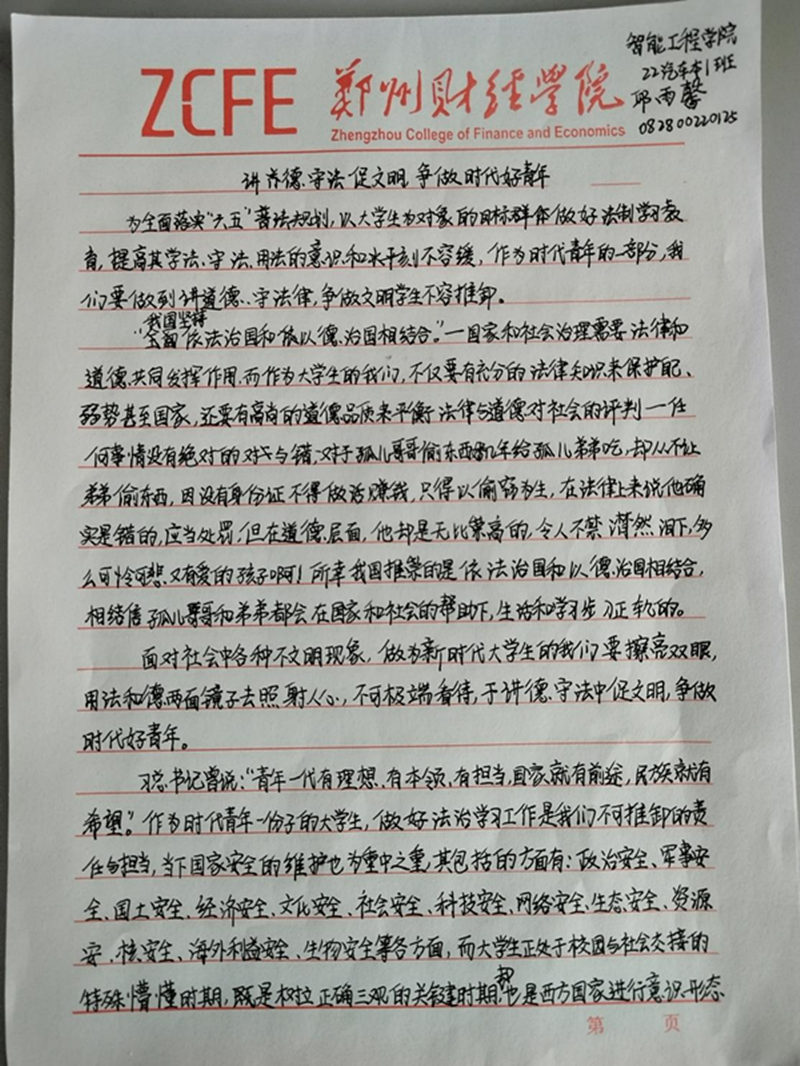 智能工程学院
22汽车本1班
邱雨馨
082800220125
ZCFE 郑州财经学院
Zhengzhou College of Finance and Economics
讲养德、守法促文明,争做时代好青年
为全面落实“六五”普法规划,以大学生为对象的目标群体做好法制学习教
育,提高其学法、守法、用法的意识和水平刻不容缓,作为时代青年的一部分,我
们要做到讲道德、守法律,争做文明学生不容推卸。
我国坚持
“依法治国和依以德治国相结合。”一国家和社会治理需要法律和
道德共同发挥作用,而作为大学生的我们,不仅要有充分的法律知识来保护自己、
弱势甚至国家,还要有高尚的道德品质来平衡法律与道德对社会的评判一任
何事情没有绝对的对与错,对于孤儿哥哥偷东西几年给孤儿弟弟吃,却从不让
弟弟偷东西,因没有身份证不得做活赚钱,只得以偷窃为生,在法律上来说他确
实是错的,应当处罚,但在道德层面,他却是无比崇高的,令人不禁潸然泪下,多
么可怜可悲又有爱的孩子啊!所幸我国推崇的是依法治国和以德治国相结合,
相结信孤儿哥哥和弟弟都会在国家和社会的帮助下,生活和学习步入正轨的。
面对社会中各种不文明现象,做为新时代大学生的我们要擦亮双眼,
用法和德两面镜子去照射人心,不可极端看待,于讲德、守法中促文明,争做
时代好青年。
习总书记曾说:“青年一代有理想、有本领、有担当,国家就有前途,民族就有
希望。”作为时代青年一份子的大学生,做好法治学习工作是我们不可推卸的责
任与担当,当下国家安全的维护也为重中之重,其包括的方面有:政治安全、军事安
全、国土安全、经济安全、文化安全、社会安全、科技安全、网络安全、生态安全、资源
安、核安全、海外利益安全、生物安全等各方面,而大学生正处于校园与社会交接的
特殊懵懂时期,既是树立正确三观的关键时期,也是西方国家进行意识形态
第 页